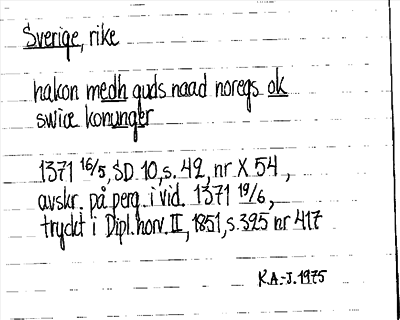 Sverige, rike
hakon medh guds naad noregs ok
swiæ konunger
1371 16/5, SD 10, s. 42, nr X 54,
avskr. på perg. i vid. 1371 19/6,
tryckt i Dipl. norv. II, 1851, s. 325 nr 417
R.A.-J. 1975